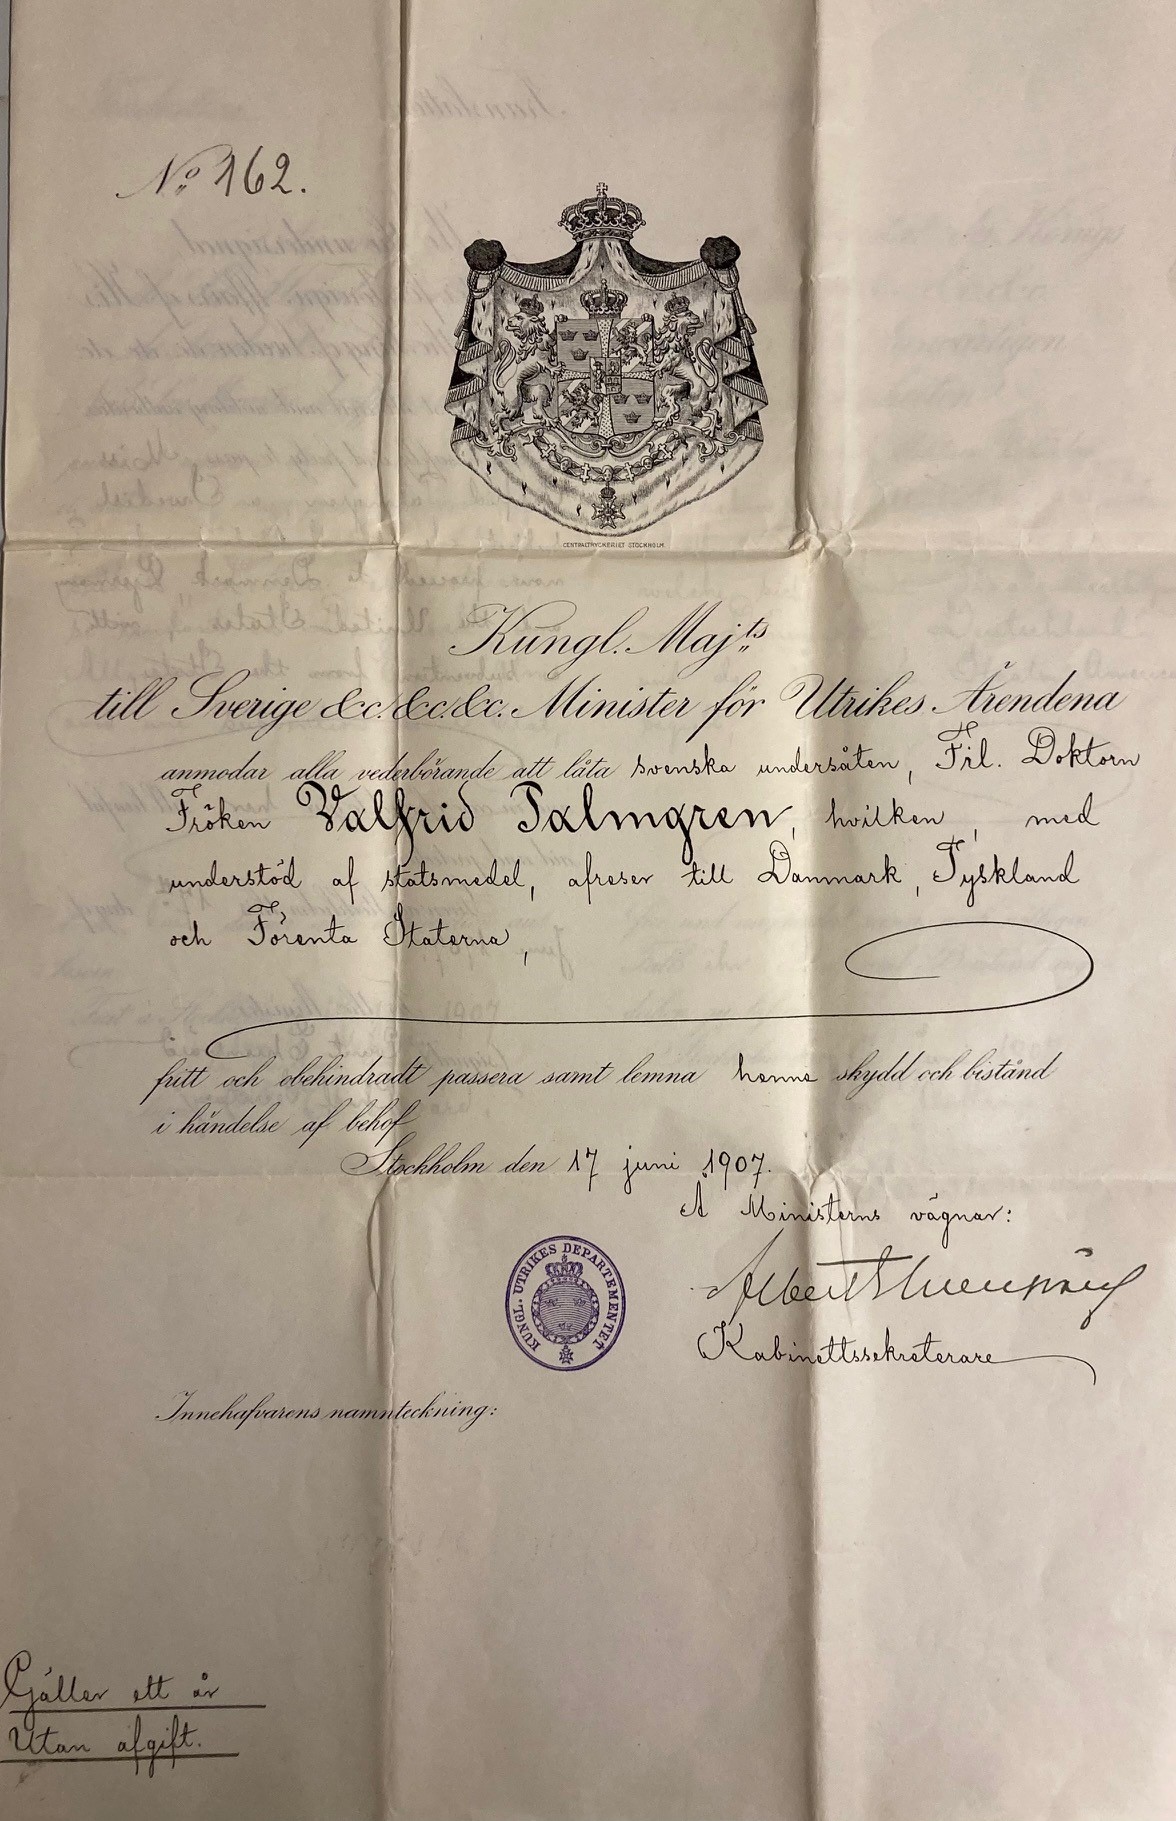 No 162.
CENTRALTRYCKERIET STOCKHOLM.
Kungl. Maj:ts
till Sverige &c. &c. &c. Minister för Utrikes Ärendena
anmodar alla vederbörande att låta svenska undersåten, Fil. Doktorn
Fröken Valfrid Palmgren, hvilken, med
understöd af statsmedel, afreser till Danmark, Tyskland
och Förenta Staterna,
fritt och obehindradt passera samt lemna henne skydd och bistånd
i händelse af behof
Stockholm den 17 juni 1907.
Å Ministerns vägnar:
KUNGL. UTRIKES DEPARTEMENTET
Albert Ehrensvärd
Kabinettssekreterare
Innehafvarens namnteckning:
Gäller ett år
Utan afgift.